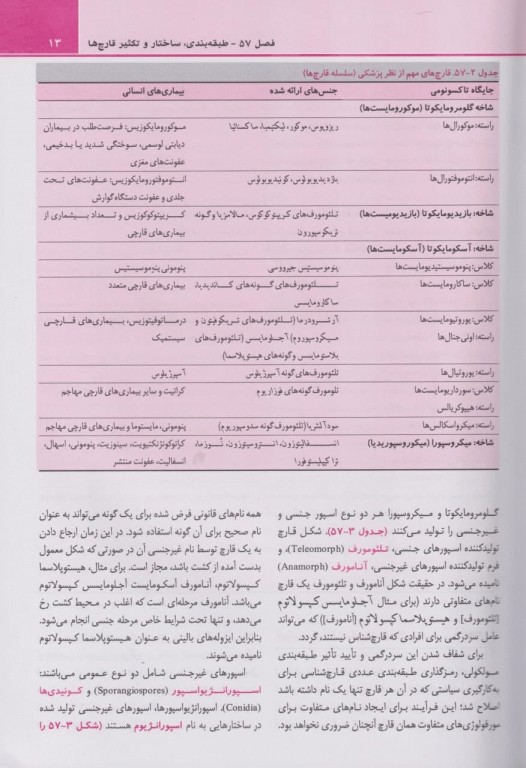 فصل ۵۷ - طبقه‌بندی، ساختار و تکثیر قارچ‌ها ۱۳
جدول ۲-۵۷. قارچ‌های مهم از نظر پزشکی (سلسله قارچ‌ها)
جایگاه تاکسونومی جنس‌های ارائه شده بیماری‌های انسانی
شاخه گلومرومایکوتا (موکورومایست‌ها)
راسته: موکورال‌ها ریزوپوس، موکور، لیکتیمیا، ساکسنائیا موکورومایکوزیس: فرصت‌طلب در بیماران
دیابتی لوسمی، سوختگی شدید یا بدخیمی،
عفونت‌های مغزی
راسته: انتوموفتورال‌ها بازیدیوبولوس، کونیدیوبولوس انتوموفتورومایکوزیس: عفونت‌های تحت
جلدی و عفونت دستگاه گوارش
شاخه: بازیدیومایکوتا (بازیدیومیست‌ها) تلئومورف‌های کریپتوکوکوس، مالاسزیا و گونه کریپتوکوکوزیس و تعداد بیشماری از
تریکوسپورون بیماری‌های قارچی
شاخه: آسکومایکوتا (آسکومایست‌ها)
کلاس: پنوموسیستیدیومایست‌ها پنوموسیستیس جیرووسی پنومونی پنوموسیستیس
کلاس: ساکارومایست‌ها تلئومورف‌های گونه‌های کاندیدیا، بیماری‌های قارچی متعدد
ساکارومایسس
کلاس: یوروتیومایست‌ها آرترودرما (تلئومورف‌های تریکوفیتون و درماتوفیتوزیس، بیماری‌های قارچی
راسته: اونی‌جنال‌ها میکروسپوروم) آجلومایسس (تلئومورف‌های سیستمیک
بلاستومایسس و گونه‌های هیستوپلاسما)
راسته: یوروتیال‌ها تلئومورف‌های گونه آسپرژیلوس آسپرژیلوس
کلاس: سورداریومایست‌ها تلومورف گونه‌های فوزاریوم کراتیت و سایر بیماری‌های قارچی مهاجم
راسته: هیپوکریالس
راسته: میکرواسکالس‌ها سودآلشریا (تلئومورف گونه سدوسپوریوم) پنومونی، مایستوما و بیماری‌های قارچی مهاجم
شاخه: میکروسپورا (میکروسپوریدیا) انسفالیتوزون، انتروسیتوزون، نُوزما، کراتوکونژنکتیویت، سینوزیت، پنومونی، اسهال،
تراکیپلیستوفورا انسفالیت، عفونت منتشر
گلومرومایکوتا و میکروسپورا هر دو نوع اسپور جنسی و
غیرجنسی را تولید می‌کنند (جدول ۳-۵۷). شکل قارچ
تولیدکننده اسپورهای جنسی، تلئومورف (Teleomorph)، و
فرم تولیدکننده اسپورهای غیرجنسی، آنامورف (Anamorph)
نامیده می‌شود. در حقیقت شکل آنامورف و تلئومورف یک قارچ
نام‌های متفاوتی دارند (برای مثال آجلومایسس کپسولاتوم
[تلئومورف] و هیستوپلاسما کپسولاتوم [آنامورف]) که می‌تواند
عامل سردرگمی برای افرادی که قارچ‌شناس نیستند، گردد.
برای شفاف شدن این سردرگمی و تأیید تأثیر طبقه‌بندی
مولکولی، رمزگذاری طبقه‌بندی عددی قارچ‌شناسی برای
به‌کارگیری سیاستی که در آن هر قارچ تنها یک نام داشته باشد
اصلاح شد؛ این فرآیند برای ایجاد نام‌های متفاوت برای
مورفولوژی‌های متفاوت همان قارچ آنچنان ضروری نخواهد بود.
همه نام‌های قانونی فرض شده برای یک گونه می‌تواند به عنوان
نام صحیح برای آن گونه استفاده شود. در این زمان ارجاع دادن
به یک قارچ توسط نام غیرجنسی آن در صورتی که شکل معمول
بدست آمده از کشت باشد، مجاز است. برای مثال، هیستوپلاسما
کپسولاتوم، آنامورف آسکومایست آجلومایسس کپسولاتوم
می‌باشد. آنامورف مرحله‌ای است که اغلب در محیط کشت رخ
می‌دهد، و تنها تحت شرایط خاص مرحله جنسی انجام می‌شود.
بنابراین ایزوله‌های بالینی به عنوان هیستوپلاسما کپسولاتوم
نامیده می‌شوند.
اسپورهای غیرجنسی شامل دو نوع عمومی می‌باشند:
اسپورانژیواسپور (Sporangiospores) و کونیدی‌ها
(Conidia). اسپورانژیواسپورها، اسپورهای غیرجنسی تولید شده
در ساختارهایی به نام اسپورانژیوم هستند (شکل ۳-۵۷ را